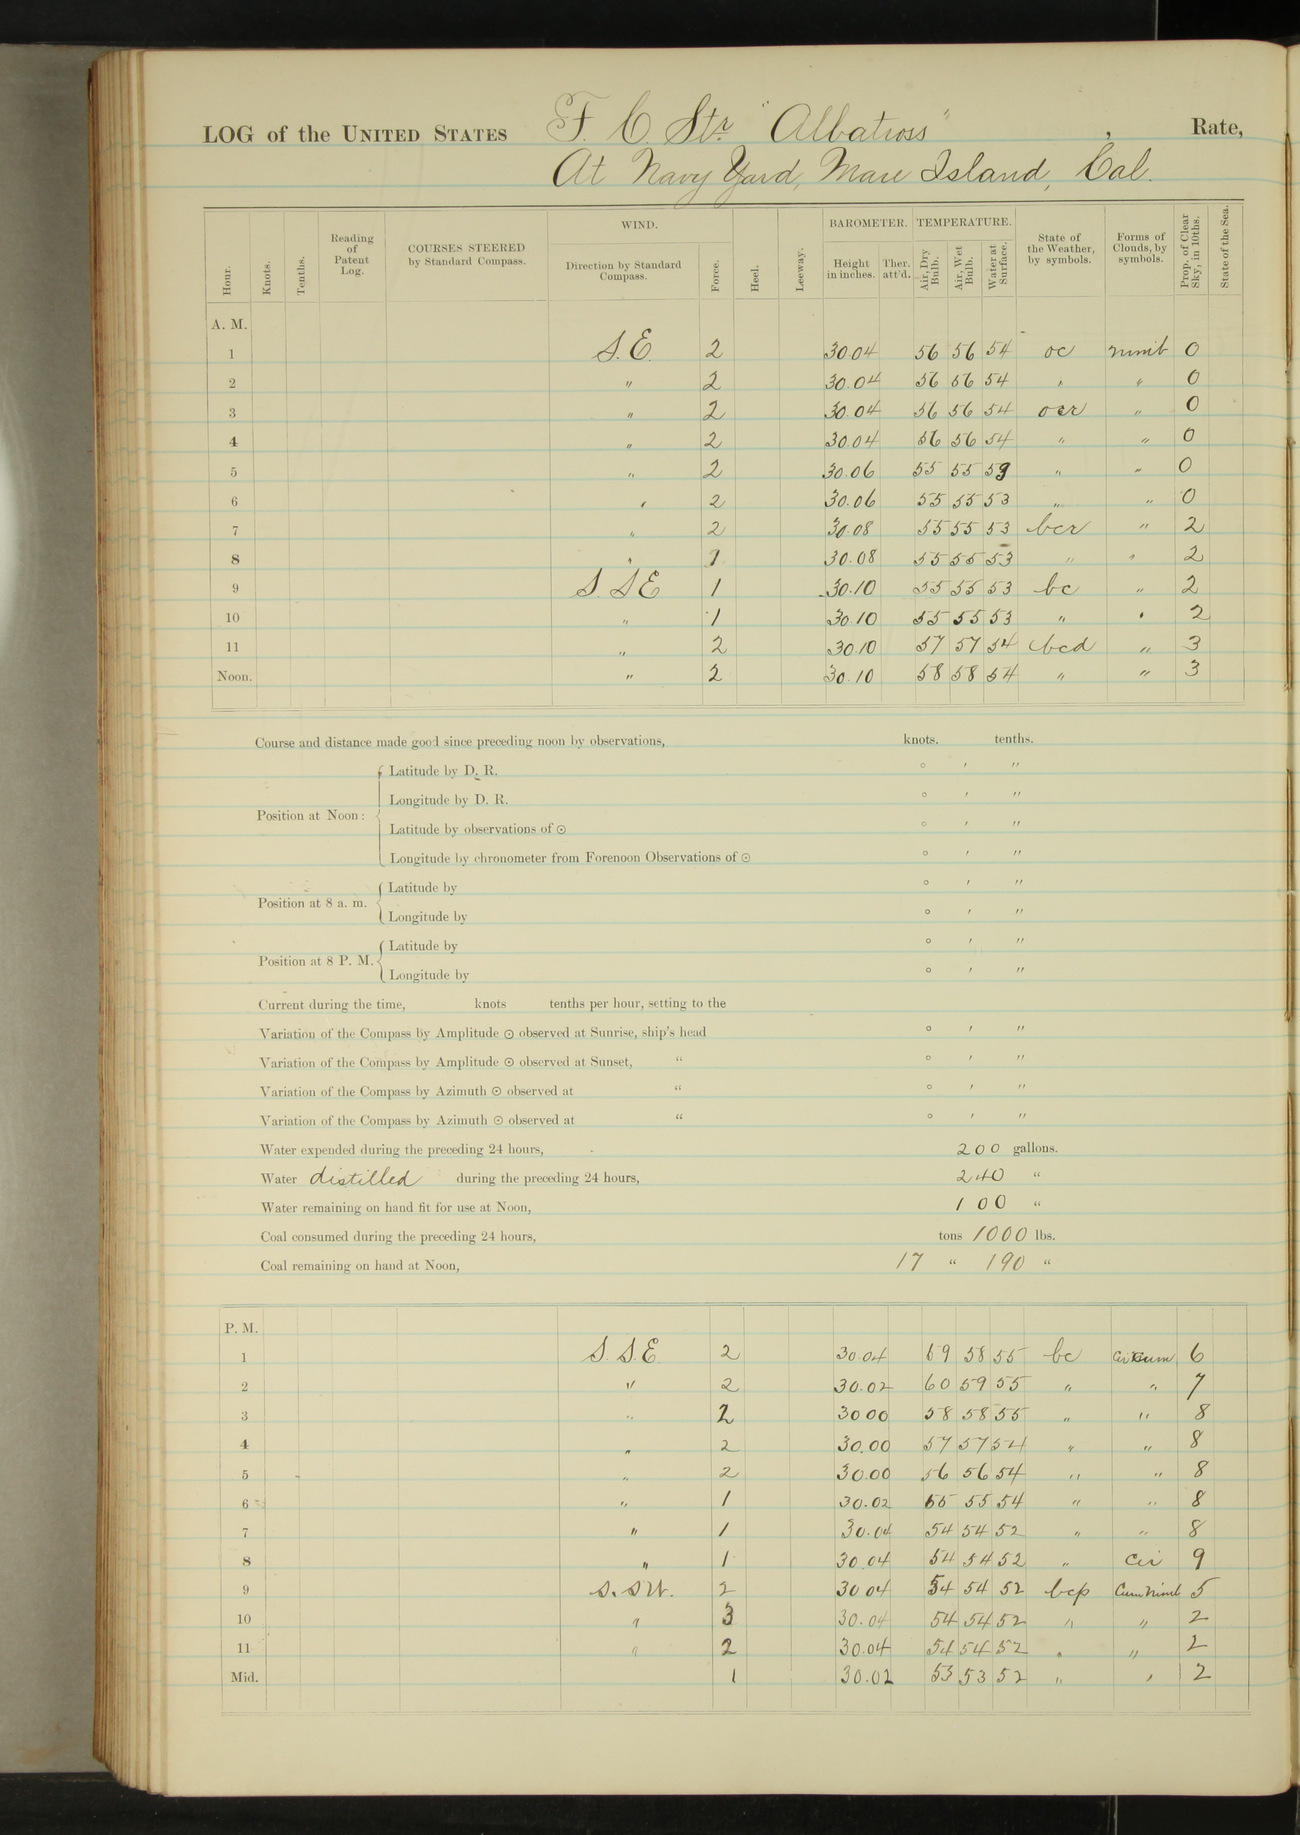 LOG of the UNITED STATES F. C. Str. "Albatross" , Rate,
At Navy Yard, Mare Island, Cal.
Hour. Knots. Tenths. Reading of Patent Log. COURSES STEERED by Standard Compass. WIND. Direction by Standard Compass. Force. Heel. Leeway. BAROMETER. Height in inches. Ther. att'd. TEMPERATURE. Air, Dry Bulb. Air, Wet Bulb. Water at Surface. State of the Weather, by symbols. Forms of Clouds, by symbols. Prop. of Clear Sky, in 10ths. State of the Sea.
A. M.
1 S.E. 2 30.04 56 56 54 oc nimb 0
2 " 2 30.04 56 56 54 " " 0
3 " 2 30.04 56 56 54 ocr " 0
4 " 2 30.04 56 56 54 " " 0
5 " 2 30.06 55 55 53 " " 0
6 " 2 30.06 55 55 53 " " 0
7 " 2 30.08 55 55 53 bcr " 2
8 " 1 30.08 55 55 53 " " 2
9 S. S E 1 30.10 55 55 53 bc " 2
10 " 1 30.10 55 55 53 " " 2
11 " 2 30.10 57 57 54 bcd " 3
Noon. " 2 30.10 58 58 54 " " 3
Course and distance made good since preceding noon by observations, knots. tenths.
Position at Noon: Latitude by D. R. ° ' "
Longitude by D. R. ° ' "
Latitude by observations of ☉ ° ' "
Longitude by chronometer from Forenoon Observations of ☉ ° ' "
Position at 8 a. m. Latitude by ° ' "
Longitude by ° ' "
Position at 8 P. M. Latitude by ° ' "
Longitude by ° ' "
Current during the time, knots tenths per hour, setting to the
Variation of the Compass by Amplitude ☉ observed at Sunrise, ship's head ° ' "
Variation of the Compass by Amplitude ☉ observed at Sunset, " ° ' "
Variation of the Compass by Azimuth ☉ observed at " ° ' "
Variation of the Compass by Azimuth ☉ observed at " ° ' "
Water expended during the preceding 24 hours, 200 gallons.
Water distilled during the preceding 24 hours, 240 "
Water remaining on hand fit for use at Noon, 100 "
Coal consumed during the preceding 24 hours, tons 1000 lbs.
Coal remaining on hand at Noon, 17 " 190 "
P. M.
1 S. S.E. 2 30.04 59 58 55 bc cir cum 6
2 " 2 30.02 60 59 55 " " 7
3 " 2 30 00 58 58 55 " " 8
4 " 2 30.00 57 57 54 " " 8
5 " 2 30.00 56 56 54 " " 8
6 " 1 30.02 55 55 54 " " 8
7 " 1 30.04 54 54 52 " " 8
8 " 1 30.04 54 54 52 " cir 9
9 S. S W. 2 30 04 54 54 52 bcp Cum Nimb 5
10 " 3 30.04 54 54 52 " " 2
11 " 2 30.04 54 54 52 " " 2
Mid. 1 30.02 53 53 52 " " 2